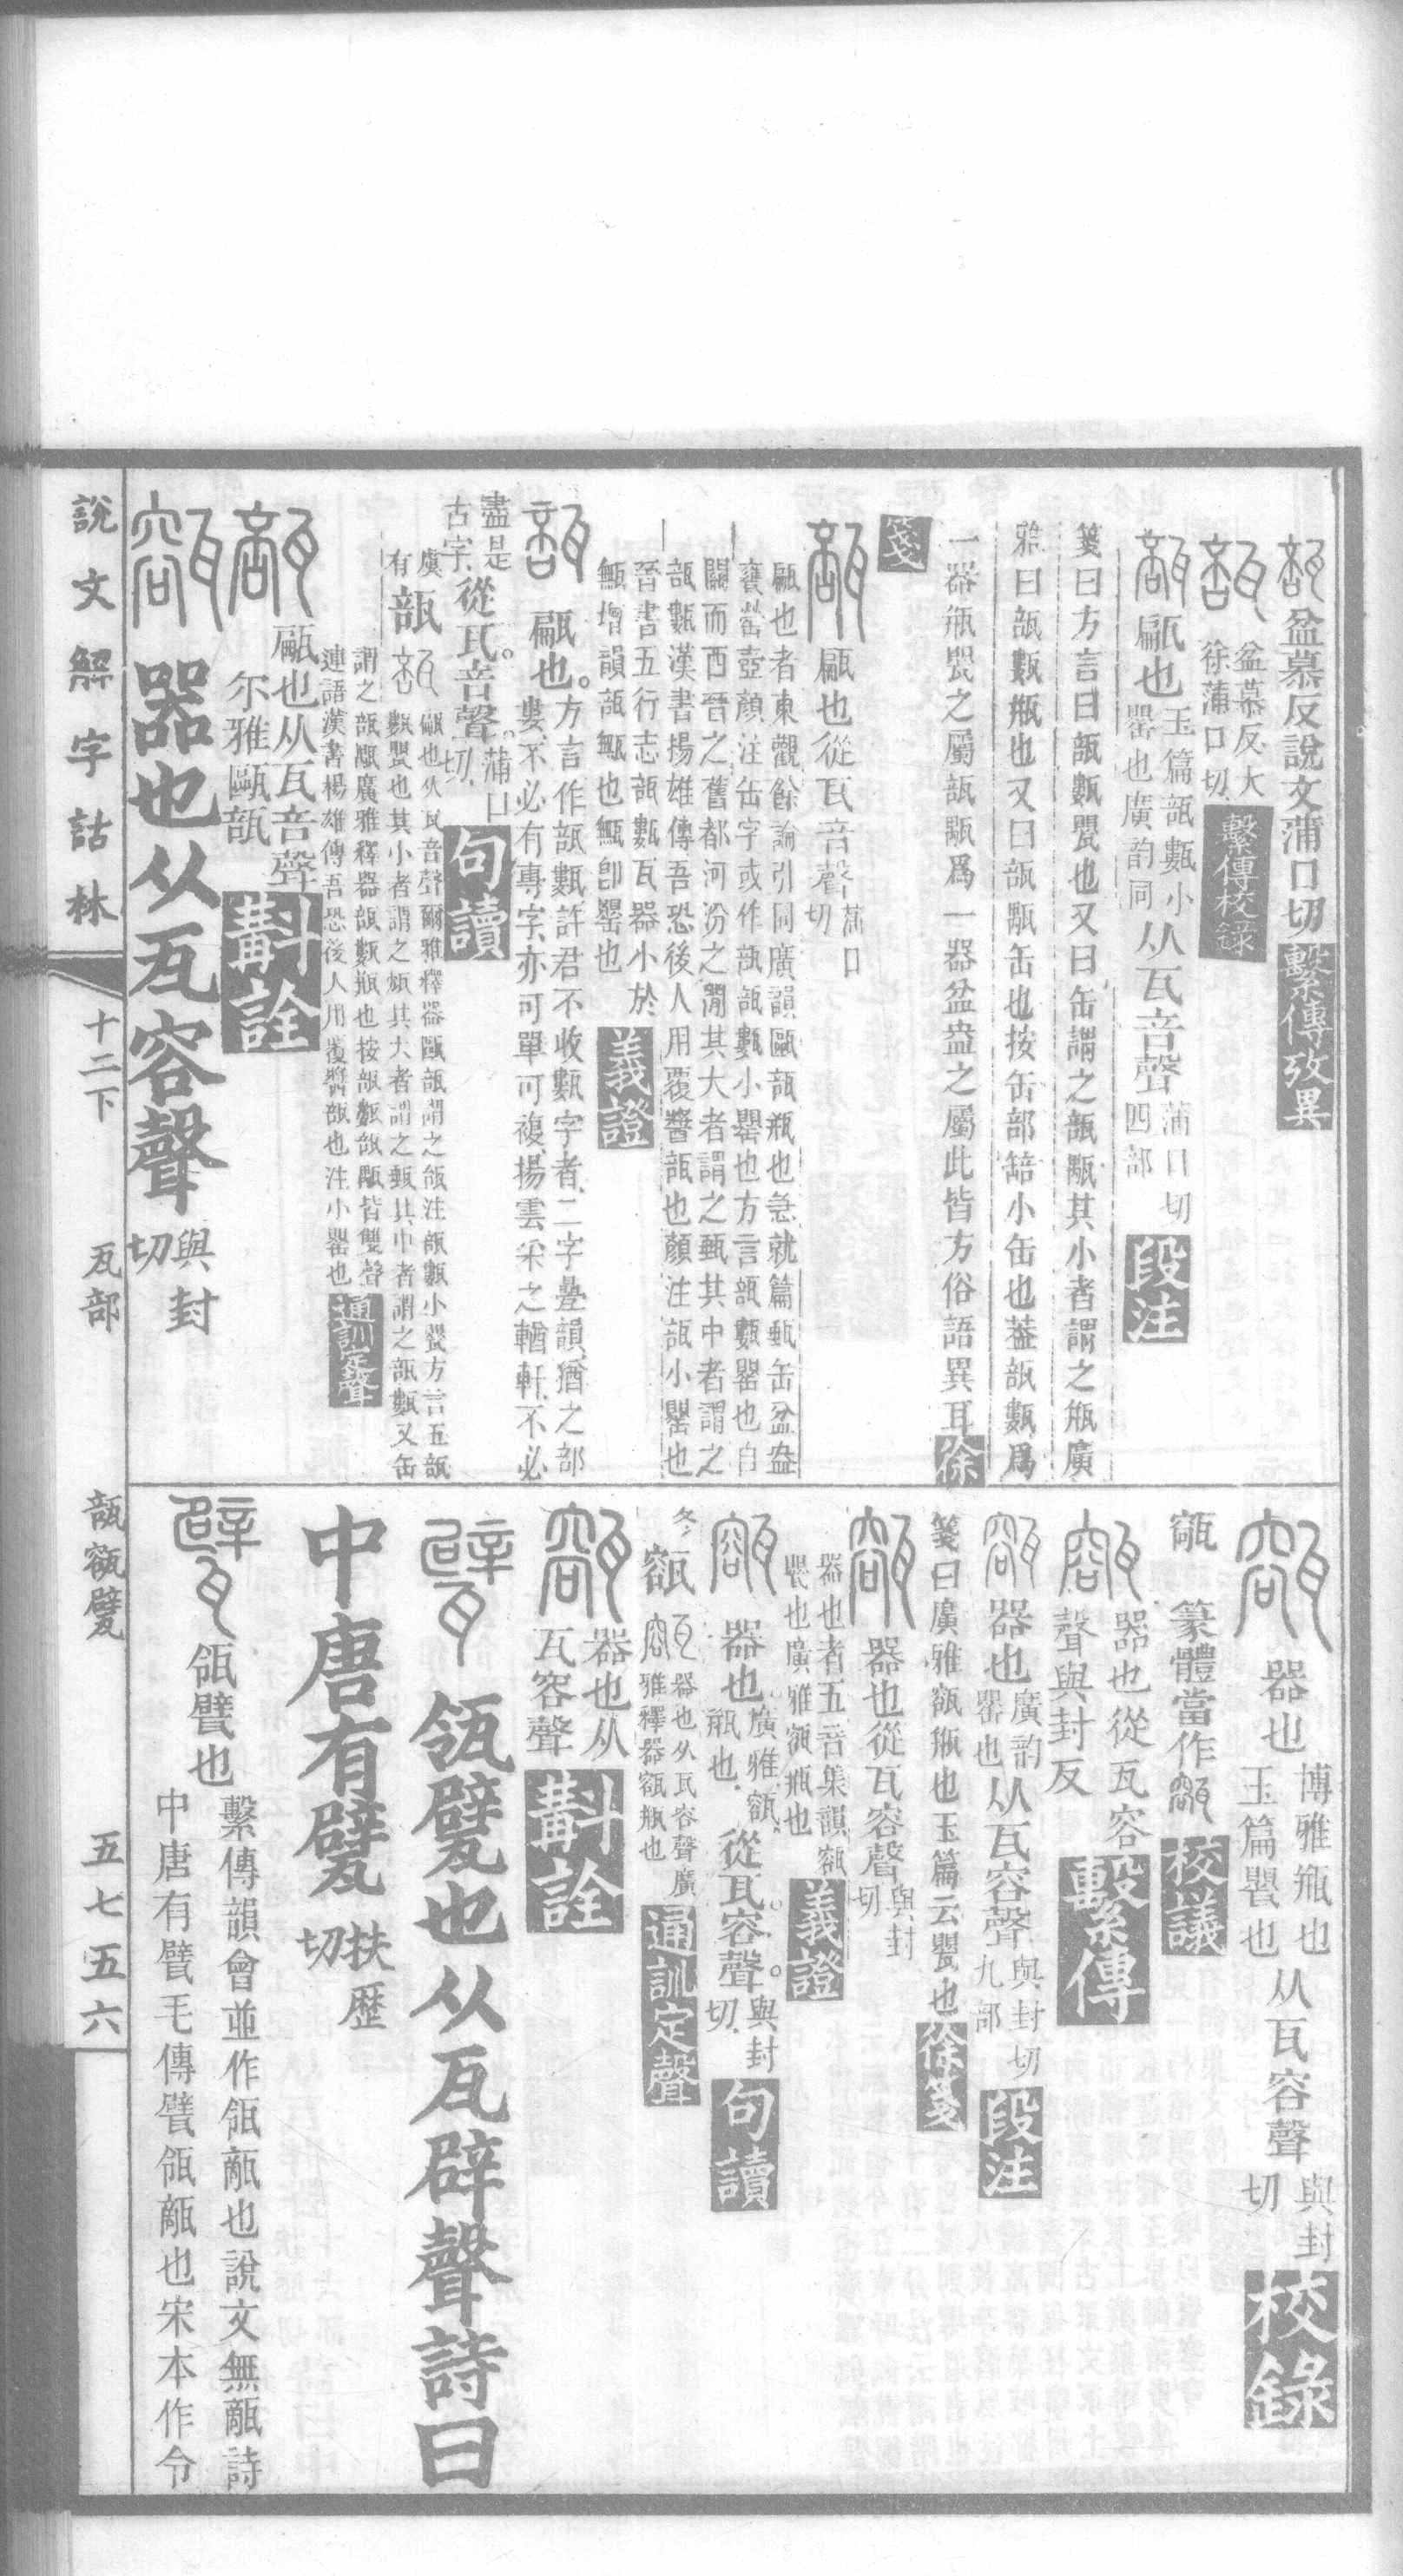 盆慕反說文蒲口切 繫傳攷異
盆慕反大
徐蒲口切 繫傳校錄
甂也 玉篇瓿甊小
罌也廣韵同 从瓦音聲 蒲口切
四部 段注
箋曰方言曰瓿甊甖也又曰缶謂之瓿甌其小者謂之瓶廣
雅曰瓿甊瓶也又曰瓿甌缶也按缶部䍌小缶也葢瓿甊爲
一器瓶甖之屬瓿甌爲一器盆盎之屬此皆方俗語異耳 徐
箋
甂也從瓦音聲 蒲口
切
甂也者東觀餘論引同廣韻甌瓿瓶也急就篇甀缶盆盎
壺顏注缶字或作瓿瓿甊小罌也方言瓿甊罌也自
關而西晉之舊都河汾之閒其大者謂之甀其中者謂之
瓿甊漢書揚雄傳吾恐後人用覆醬瓿也顏注瓿小罌也
晉書五行志瓿甊瓦器小於
甀增韻瓿甀也甀卽罌也 義證
甂也。方言作瓿甊許君不收甊字者二字疊韻猶之部
婁不必有專字亦可單可複揚雲采之輶軒不必
盡是
古字 從瓦。音聲。蒲口
切 句讀
瓿 甂也从瓦音聲爾雅釋器甌瓿謂之瓵注瓿甊小甖方言五瓿
甊甖也其小者謂之瓶其大者謂之甀其中者謂之瓿甊又缶
謂之瓿甌廣雅釋器瓿甊瓶也按瓿甊瓿甌皆雙聲
連語漢書楊雄傳吾恐後人用覆醬瓿也注小罌也 通訓定聲
甂也从瓦音聲
尔雅甌瓿 斠詮
器也从瓦容聲 與封
切
說文解字詁林
十二下 瓦部
瓿㼸甓
五七五六
器也 博雅瓶也
玉篇甖也 从瓦容聲 與封
切 校錄
㼸 篆體當作 校議
器也從瓦容
聲與封反 繫傳
器也 廣韵
罌也 从瓦容聲 與封切
九部 段注
箋曰廣雅㼸瓶也玉篇云甖也 徐箋
器也從瓦容聲 與封
切
器也者五音集韻㼸
甖也廣雅㼸瓶也 義證
器也。廣雅㼸
瓶也。從瓦。容聲。與封
切 句讀
㼸 器也从瓦容聲廣
雅釋器㼸瓶也 通訓定聲
器也从
瓦容聲 斠詮
瓴甓也从瓦辟聲詩曰
中唐有甓 扶歷
切
瓴甓也 繫傳韻會並作瓴甋也說文無甋詩
中唐有甓毛傳甓瓴甋也宋本作令